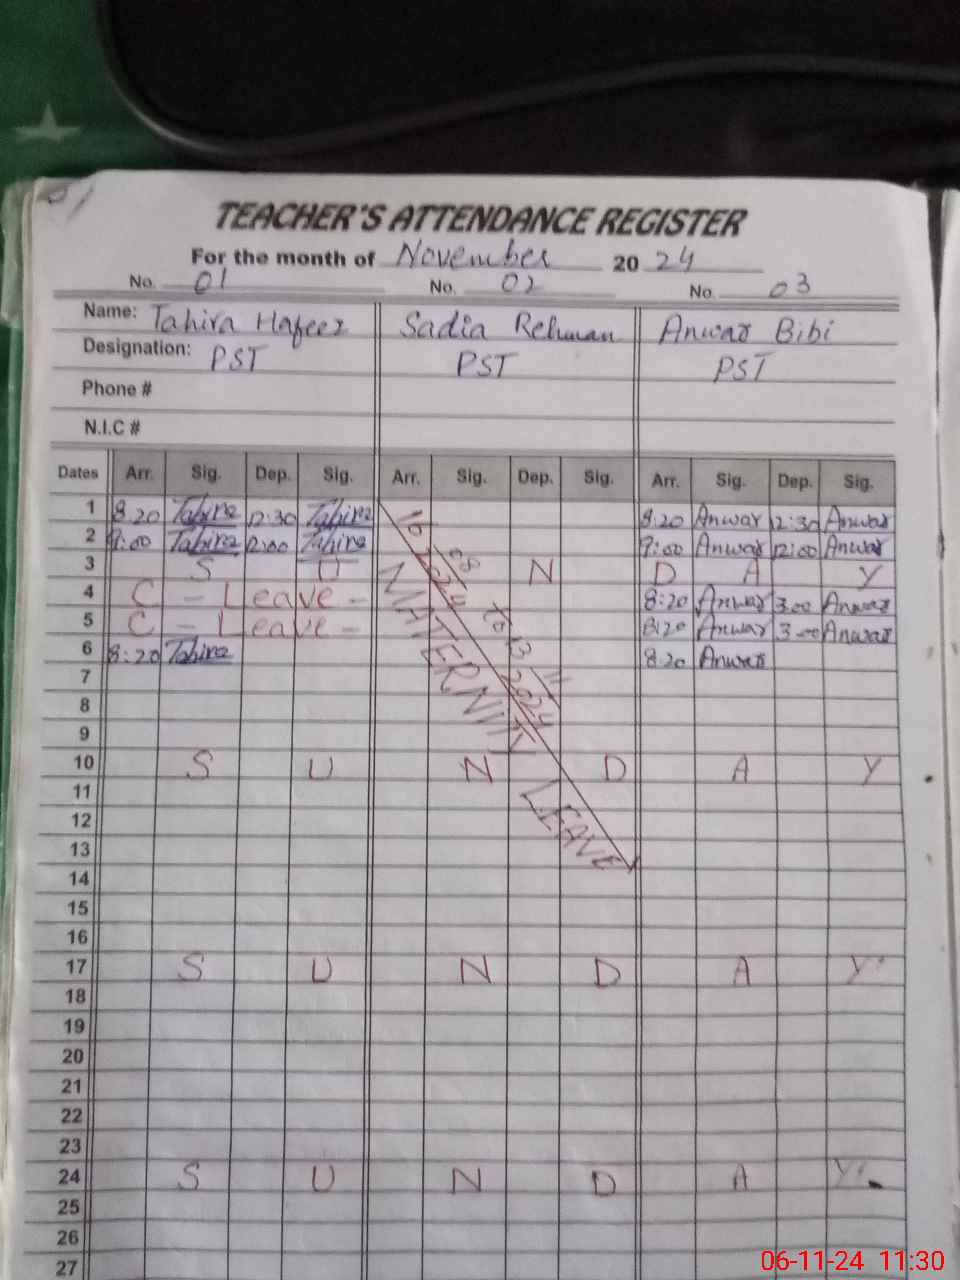 TEACHER'S ATTENDANCE REGISTER
For the month of November 2024
No. 01 No. 02 No. 03
Name: Tahira Hafeez Sadia Rehman Anwar Bibi
Designation: PST PST PST
Phone #
N.I.C #
Dates Arr. Sig. Dep. Sig. Arr. Sig. Dep. Sig. Arr. Sig. Dep. Sig.
1 8:20 Tahira 12:30 Tahira 8:20 Anwar 12:30 Anwar
2 9:00 Tahira 12:00 Tahira 9:00 Anwar 12:00 Anwar
3 S U N D A Y
4 C - Leave - 8:20 Anwar 3:00 Anwar
5 C - Leave - 8:20 Anwar 3:00 Anwar
6 8:20 Tahira 8:20 Anwar
16 08 2024 to 13 11 2024
MATERNITY LEAVE
7
8
9
10 S U N D A Y
11
12
13
14
15
16
17 S U N D A Y
18
19
20
21
22
23
24 S U N D A Y
25
26
27
06-11-24 11:30